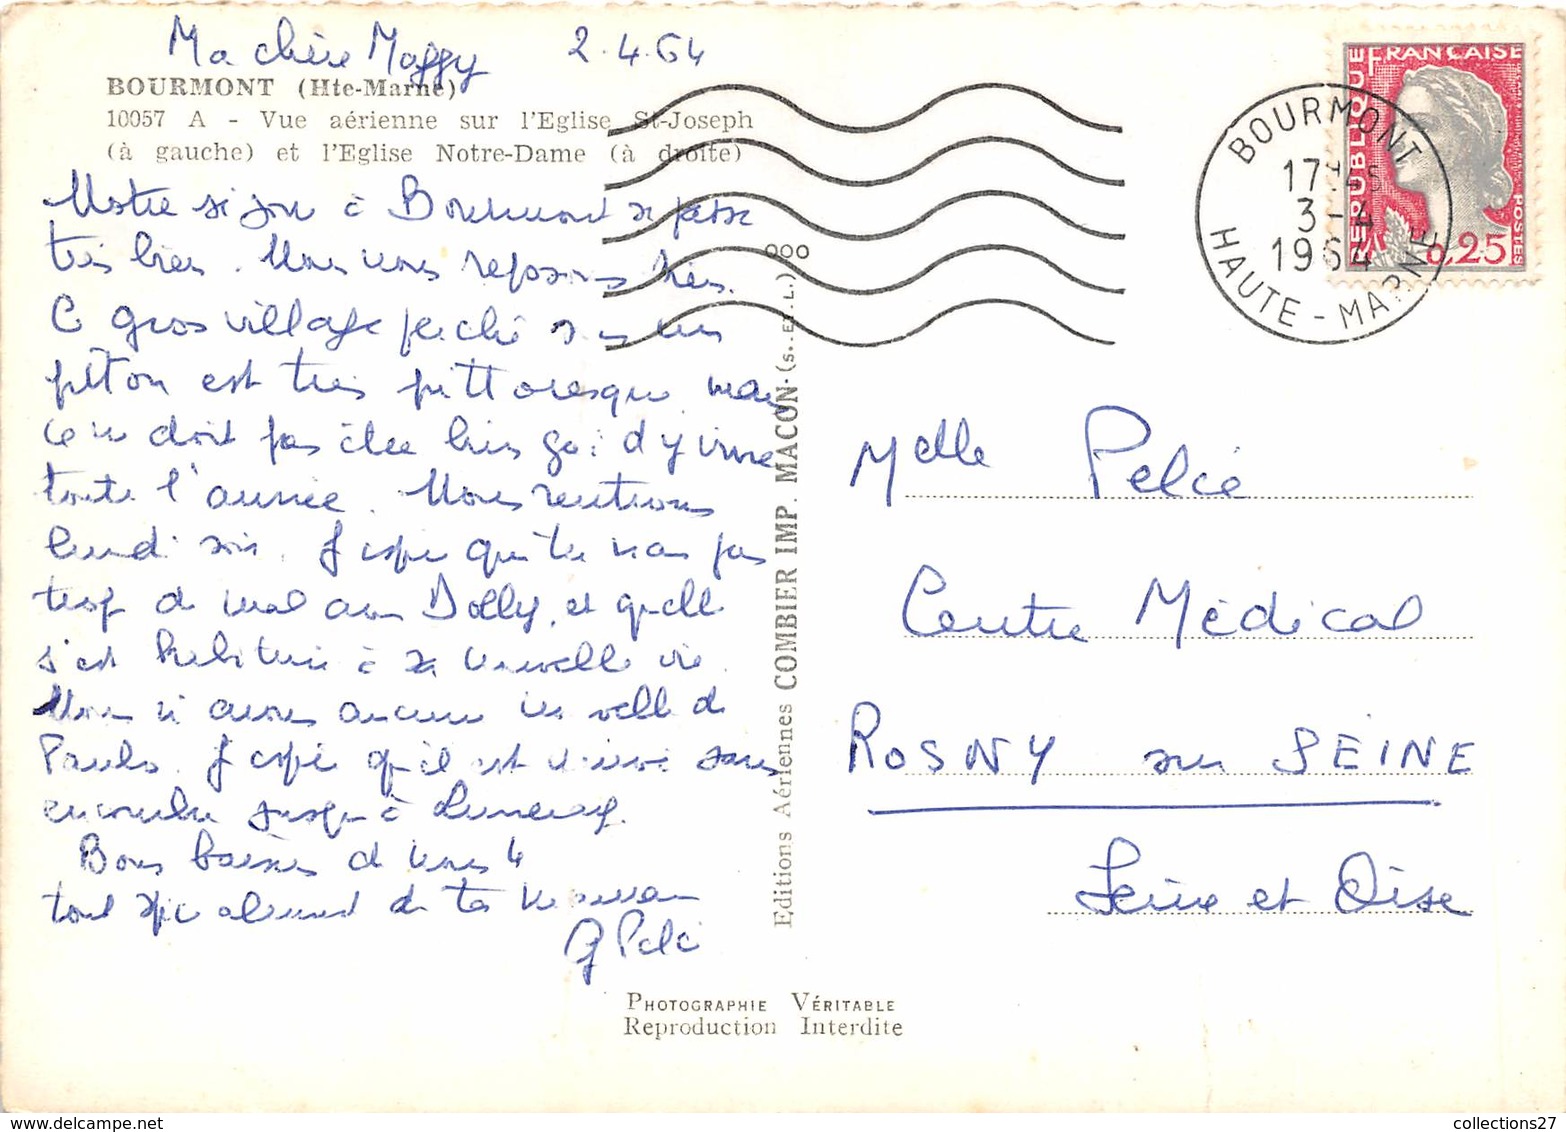 Ma chère Maggy 2.4.64
BOURMONT (Hte-Marne)
10057 A - Vue aérienne sur l'Eglise St-Joseph
(à gauche) et l'Eglise Notre-Dame (à droite)
Notre séjour à Bourmont se passe
très bien. Nous nous reposons bien.
Ce gros village perché sur un
piton est très pittoresque mais
ce ne doit pas être bien gai d'y vivre
toute l'année. Nous rentrons
lundi soir. J'espère que tu n'as pas
trop de mal avec Dolly, et qu'elle
s'est habituée à sa nouvelle vie.
Nous n'avons aucune nouvelle de
Paulo. J'espère qu'il est arrivé sans
encombre jusqu'à
Bons baisers de nous 4
tout spécialement de ta maman
G Pelcé
REPUBLIQUE FRANÇAISE
0,25
POSTES
BOURMONT
17H45
3-4
1964
HAUTE-MARNE
Melle Pelcé
Centre Médical
ROSNY sur SEINE
Seine et Oise
Editions Aériennes COMBIER IMP. MACON (S.. ET.. L.) ooo
PHOTOGRAPHIE VÉRITABLE
Reproduction Interdite
collections27